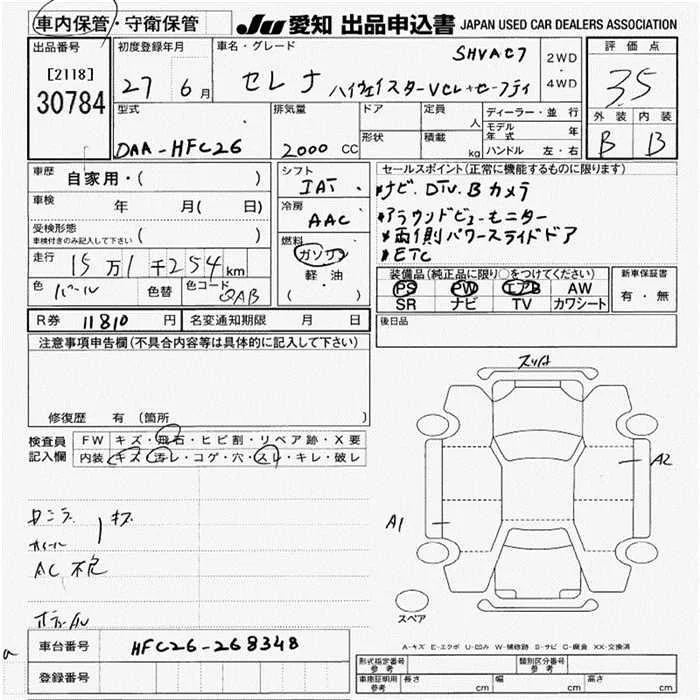 車内保管・守衛保管
JU 愛知 出品申込書 JAPAN USED CAR DEALERS ASSOCIATION
出品番号
[2118]
30784
初度登録年月
27 6月
車名・グレード
セレナ ハイウェイスターVセレ+セーフティ
SHVAC7
2WD
・
4WD
評価点
3.5
外装 内装
B B
型式
DAA-HFC26
排気量
2000 CC
ドア
形状
定員
人
積載
kg
ディーラー・並行
モデル年式 年
ハンドル 左・右
車歴 自家用・( )
車検 年 月( 日)
受検形態
車検付きのみ記入して下さい ( )
走行 15万1千254km
色 パール 色替 色コード QAB
シフト
IAT
冷房
AAC
燃料
ガソリン
軽油
( ・ )
セールスポイント(正常に機能するものに限ります)
*ナビ. DTV. Bカメラ
*アラウンドビューモニター
*両側パワースライドドア
*ETC
装備品(純正品に限り○をつけてください)
PS PW エアB AW
SR ナビ TV カワシート
新車保証書
有・無
R券 11810 円 名変通知期限 月 日
後日品
注意事項申告欄(不具合内容等は具体的に記入して下さい)
修復歴 有(箇所 )
検査員記入欄
FW キズ・飛石・ヒビ割・リペア跡・X要
内装 キズ・汚レ・コゲ・穴・スレ・キレ・破レ
キズ
AC不良
A2
A1
スペア
A-キズ E-エクボ U-凹み W-補修跡 S-サビ C-腐食 XX-交換済
車台番号 HFC26-268348
登録番号
形式指定番号 参考
類別区分番号 参考
車庫証明用 参考 長さ cm 幅 cm 高さ cm